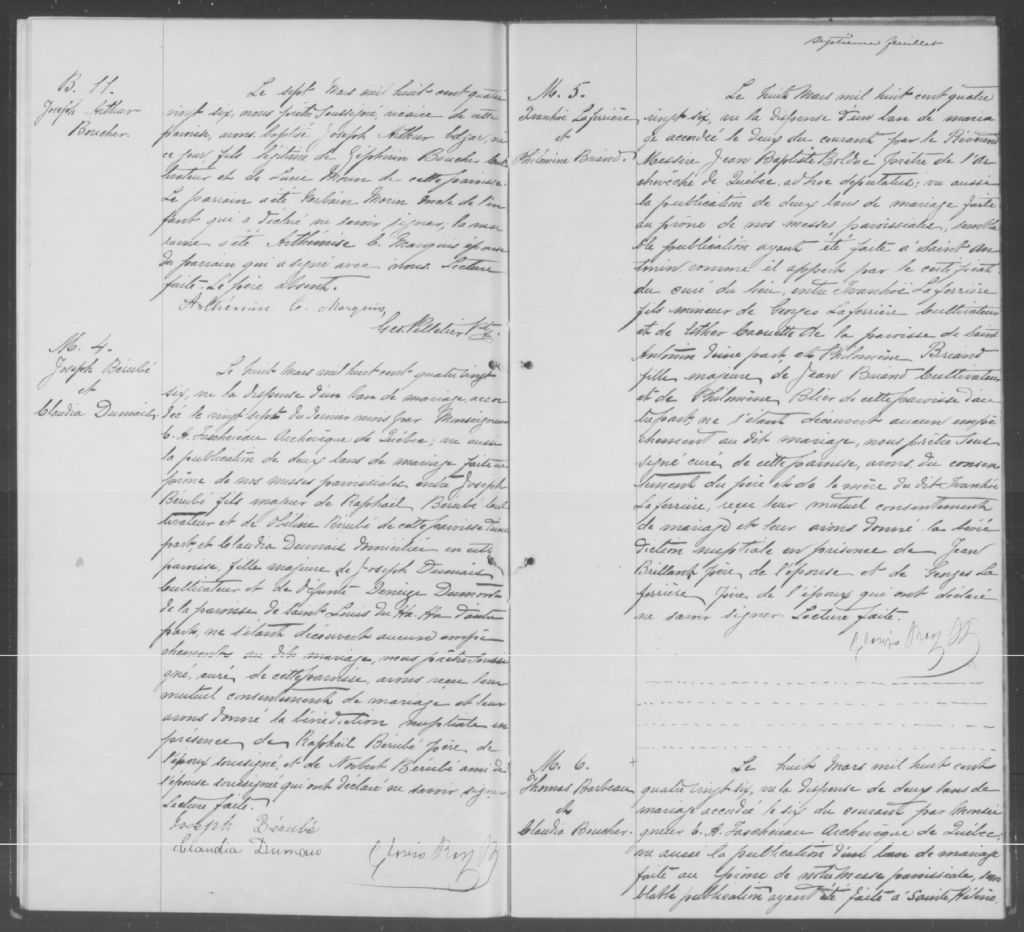 B. 11.
Joseph Arthur
Boucher.
Le sept Mars mil huit cent quatre
vingt six, nous prêtre soussigné, vicaire de cette
paroisse, avons baptisé Joseph Arthur Edgar, né
ce jour, fils légitime de Zéphirin Boucher cul
tivateur et de Lucie Morin de cette paroisse.
Le parrain a été Morin oncle de l'en
fant qui a déclaré ne savoir signer, la mar
raine a été Arthémise C. Marquis épouse
du parrain qui a signé avec nous. Lecture
faite. Le père absent.
Arthémise C. Marquis
Geo. Pelletier Ptre.
M. 4.
Joseph Bérubé
et
Claudia Dumais,
Le huit Mars mil huit cent quatre vingt
six, vu la dispense d'un ban de mariage accor
dée le vingt sept du dernier mois par Monseigneur
E. A. Taschereau Archevêque de Québec; vu aussi
la publication de deux bans de mariage faite au
prône de nos messes paroissiales, entre Joseph
Bérubé fils majeur de Raphaël Bérubé cul
tivateur et de Bérubé de cette paroisse d'une
part, et Claudia Dumais domiciliée en cette
paroisse, fille majeure de Joseph Dumais
Cultivateur et de défunte Denize Dumont
de la paroisse de Saint Louis du Ha-Ha d'autre
part; ne s'étant découvert aucun empê
chement au dit mariage, nous prêtre soussi
gné, curé de cette paroisse, avons reçu leur
mutuel consentement de mariage et leur
avons donné la bénédiction nuptiale en
présence de Raphaël Bérubé père de
l'époux soussigné, et de Norbert Bérubé ami de
l'épouse soussignée qui ont déclaré ne savoir signer.
Lecture faite.
Joseph Bérubé
Claudia Dumais
Clovis Roy Ptre
Septième feuillet
M. 5.
Ivanhoë Laferrière
et
Philomène Briand.
Le huit Mars mil huit cent quatre
vingt six, vu la dispense d'un ban de maria
ge accordée le deux du courant par le Révérend
Messire Jean Baptiste Bolduc prêtre de l'Ar
chevêché de Québec, ad hoc deputatus; vu aussi
la publication de deux bans de mariage faite
au prône de nos messes paroissiales, sembla
ble publication ayant été faite à Saint An
tonin comme il appert par le certificat
du curé du lieu, entre Ivanhoë Laferrière
fils mineur de Georges Laferrière Cultivateur
et de Esther Caouette de la paroisse de Saint
Antonin d'une part, et Philomène Briand
fille majeure de Jean Briand Cultivateur
et de Philomène Blier de cette paroisse d'au
tre part; ne s'étant découvert aucun empê
chement au dit mariage, nous prêtre sous
signé curé de cette paroisse, avons, du consen
tement du père et de la mère du dit Ivanhoë
Laferrière, reçu leur mutuel consentement
de mariage et leur avons donné la béné
diction nuptiale en présence de Jean
Brillant père de l'épouse et de Georges La
ferrière père de l'époux qui ont déclaré
ne savoir signer. Lecture faite.
Clovis Roy Ptre
M. 6.
Thomas Barbeau
et
Claudia Boucher.
Le huit Mars mil huit cent
quatre vingt six, vu la dispense de deux bans de
mariage accordée le six du courant par Monsei
gneur E. A. Taschereau Archevêque de Québec,
vu aussi la publication d'un ban de mariage
faite au prône de notre messe paroissiale, sem
blable publication ayant été faite à Sainte Hélène,